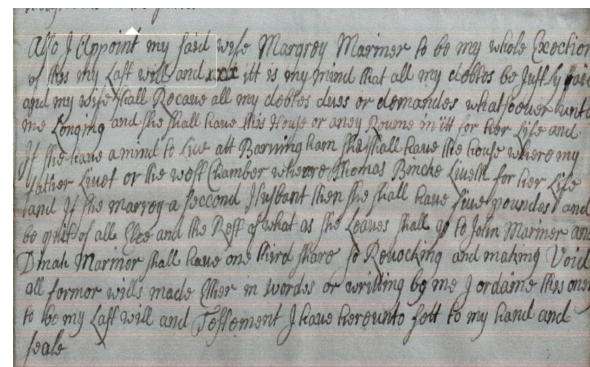 Also I Appoint my said wife Margrey Marimer to be my whole Exection
of this my Last will and xxx itt is my mind that all my debtes be Justly paie
and my wife shall Recave all my debtes dues or demandes whatsoever unto
me Longing and she shall have this House or aney Roume in itt for her Lyfe and
If she have a mind to Live att Barningham she shall have the house where my
father Lives or the west Chamber where Thomas Bincke Liveth for her Life
and If she marrey a second Husbant then she shall have five poundes and
be quitt of all Elce and the Rest of what as she Leaves shall go to John Marimer and
Dinah Marmor shall have one third share so Revocking and making Void
all formor wills made Ether in wordes or writting by me I ordaine this one
to be my Last will and Testement I have hereunto sett to my hand and
seale